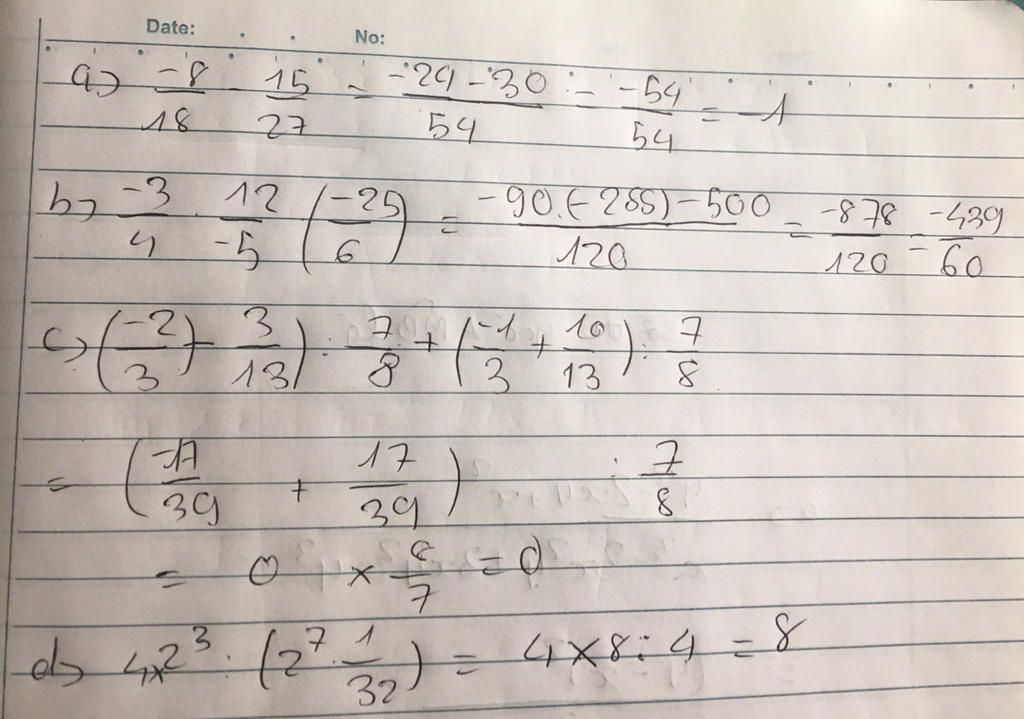 Date: No:
a) -8/18 - 15/27 = -24-30/54 = -54/54 = -1
b) -3/4 . 12/-5 (-25/6) = -90.(-288)-500/120 = -878/120 = -439/60
c) (-2/3) + 3/13) : 7/8 + (-1/3 + 10/13) : 7/8
= (-17/39 + 17/39) : 7/8
= 0 × 8/7 = 0
d) 4×2³ : (2⁷ . 1/32) = 4×8:4 = 8